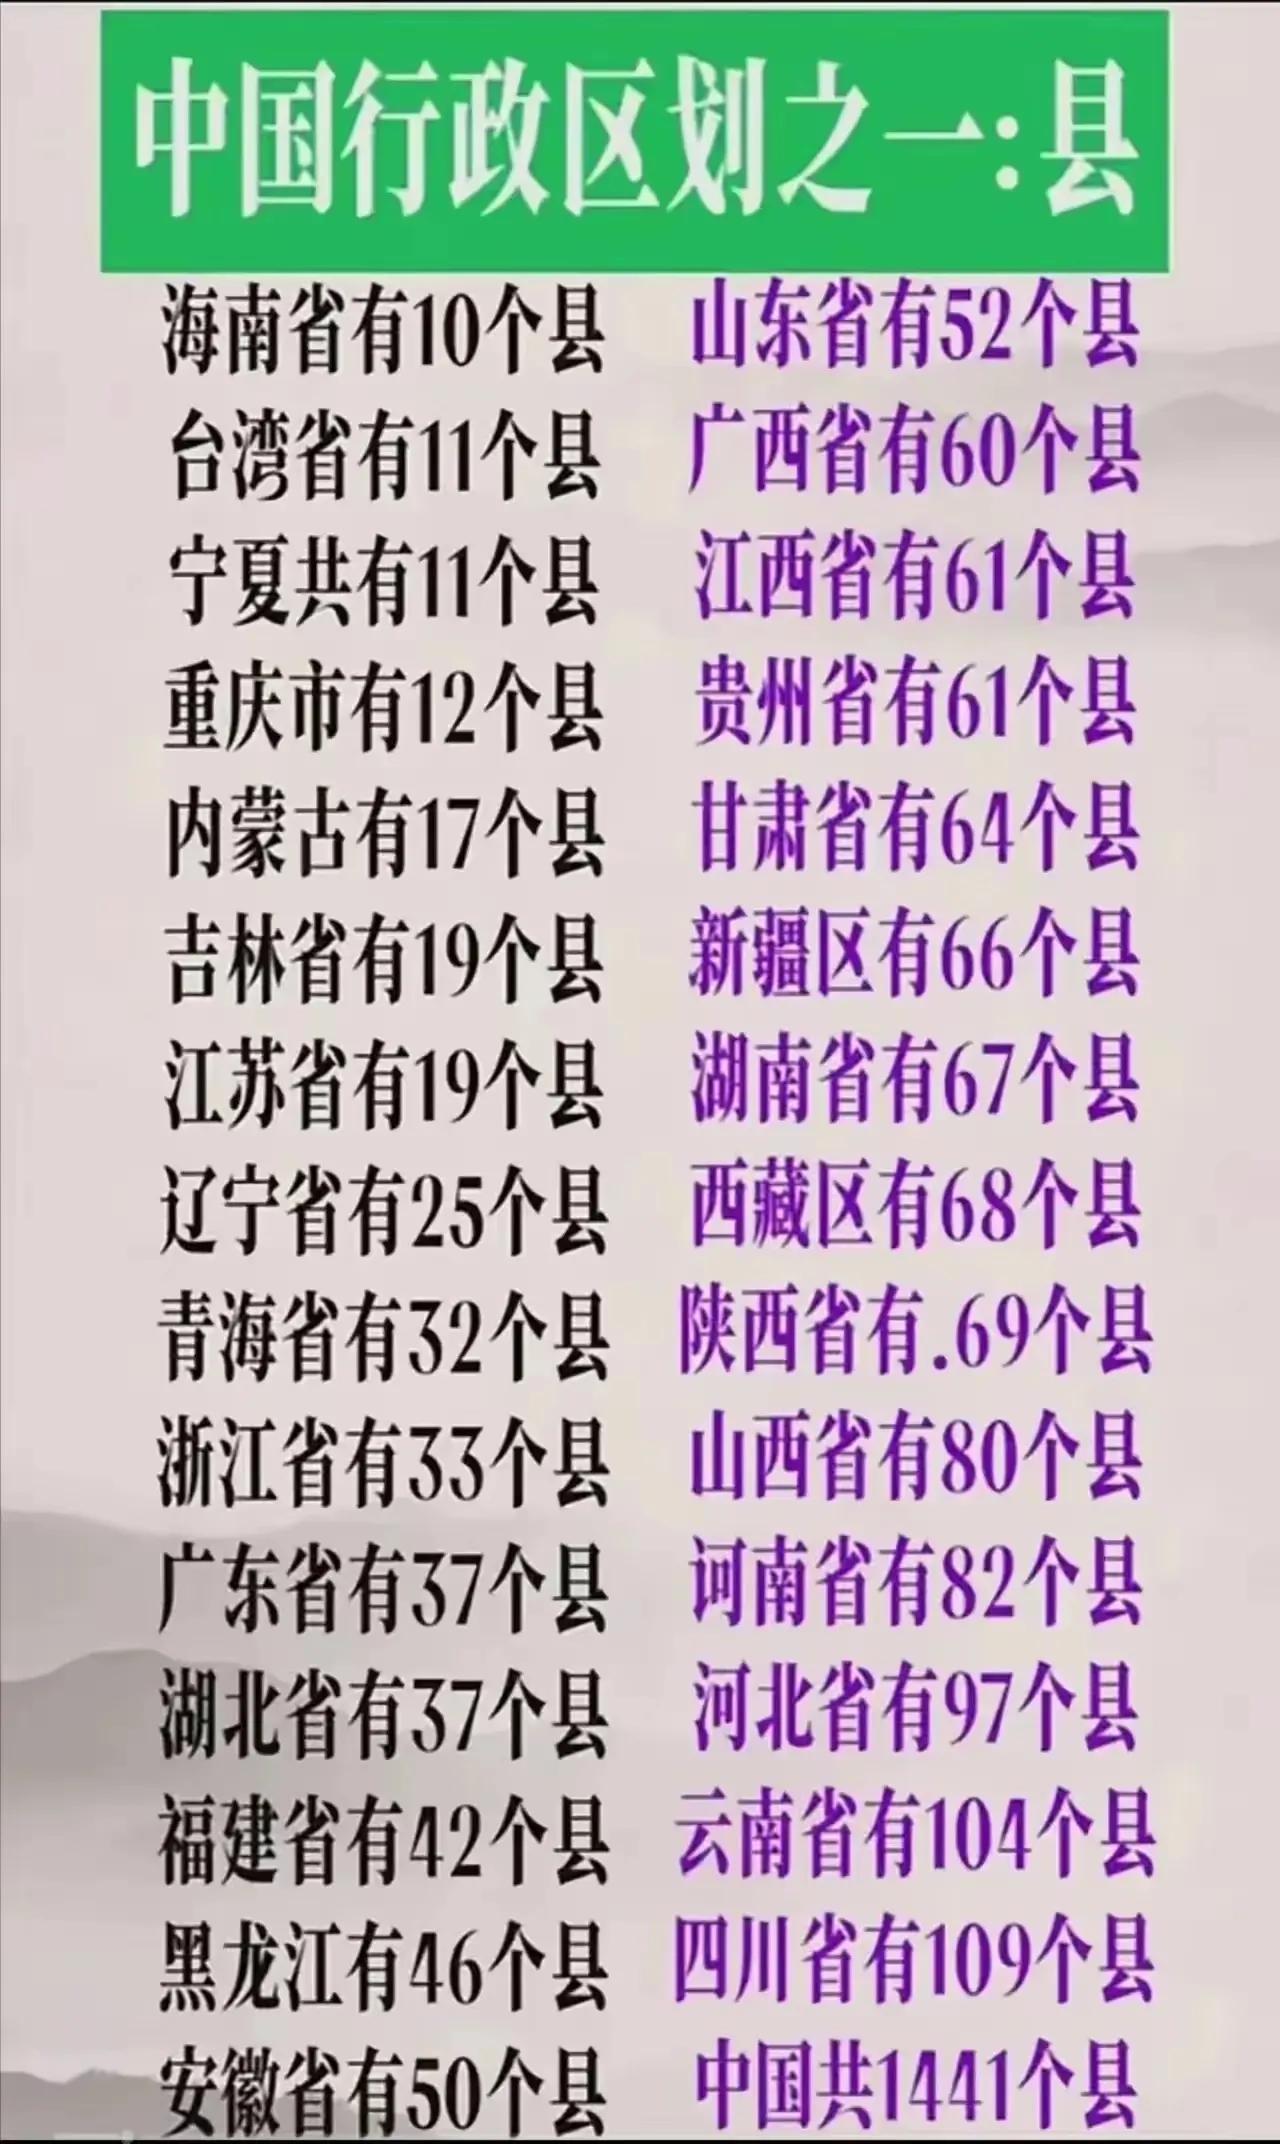 中国行政区划之一:县
海南省有10个县
台湾省有11个县
宁夏共有11个县
重庆市有12个县
内蒙古有17个县
吉林省有19个县
江苏省有19个县
辽宁省有25个县
青海省有32个县
浙江省有33个县
广东省有37个县
湖北省有37个县
福建省有42个县
黑龙江有46个县
安徽省有50个县
山东省有52个县
广西省有60个县
江西省有61个县
贵州省有61个县
甘肃省有64个县
新疆区有66个县
湖南省有67个县
西藏区有68个县
陕西省有.69个县
山西省有80个县
诃南省有82个县
河北省有97个县
云南省有104个县
四川省有109个县
中国共1441个县